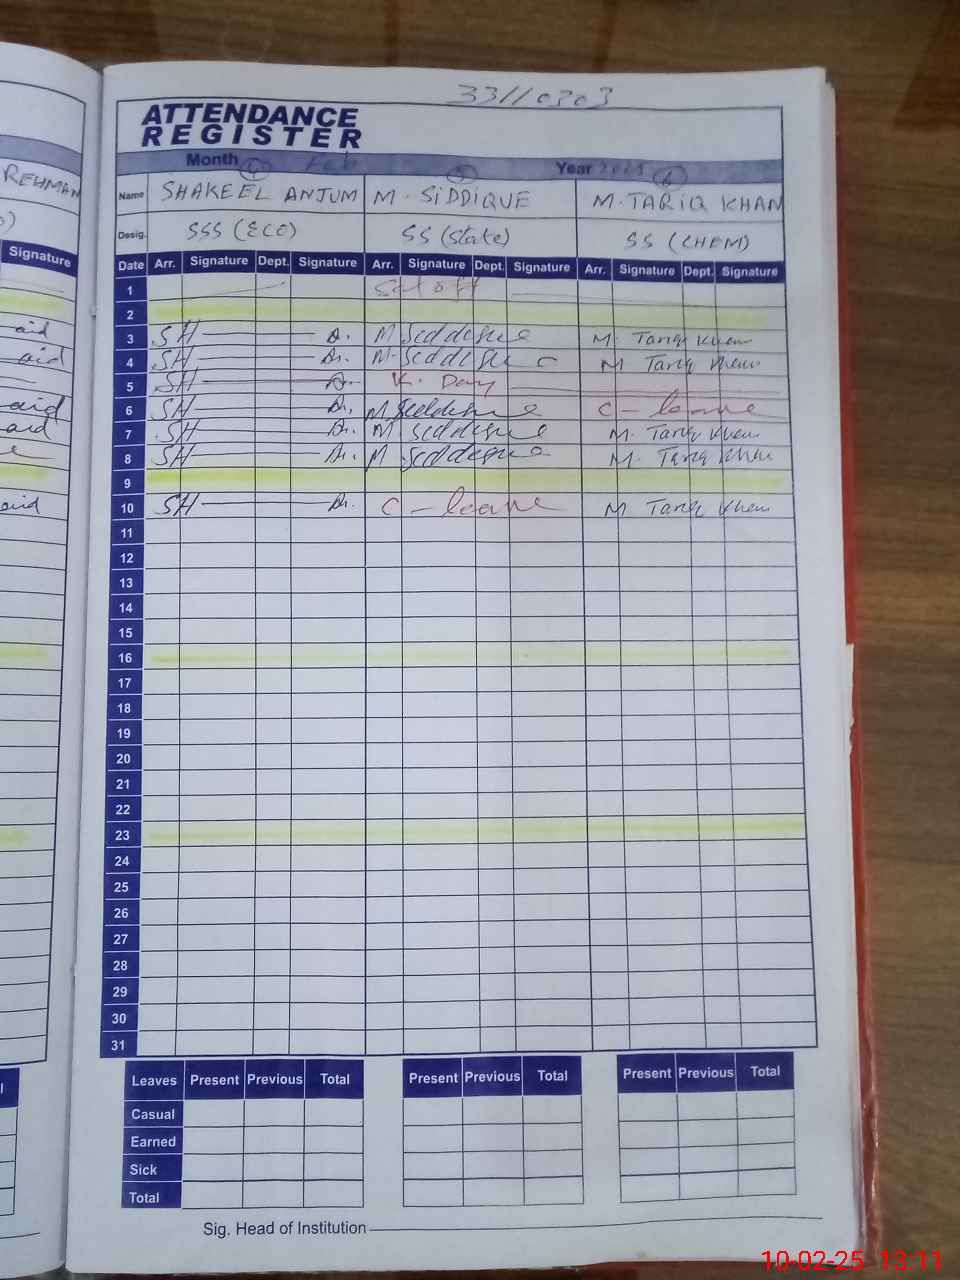 33110303
ATTENDANCE
REGISTER
Month 4 Feb 5 Year 2025 6
REHMAN
Name SHAKEEL ANJUM M. SIDDIQUE M. TARIQ KHAN
Desig. SSS (ECO) SS (State) SS (CHEM)
Signature
Date Arr. Signature Dept. Signature Arr. Signature Dept. Signature Arr. Signature Dept. Signature
1
2
aid 3 SH M Siddique M. Tariq Khan
aid 4 SH M. Siddique M Tariq Khan
5 SH K. Day
aid 6 SH M Siddique C - leave
aid 7 SH M Siddique M. Tariq Khan
8 SH M Siddique M. Tariq Khan
9
aid 10 SH C - leave M Tariq Khan
11
12
13
14
15
16
17
18
19
20
21
22
23
24
25
26
27
28
29
30
31
Leaves Present Previous Total Present Previous Total Present Previous Total
Casual
Earned
Sick
Total
Sig. Head of Institution
10-02-25 13:11